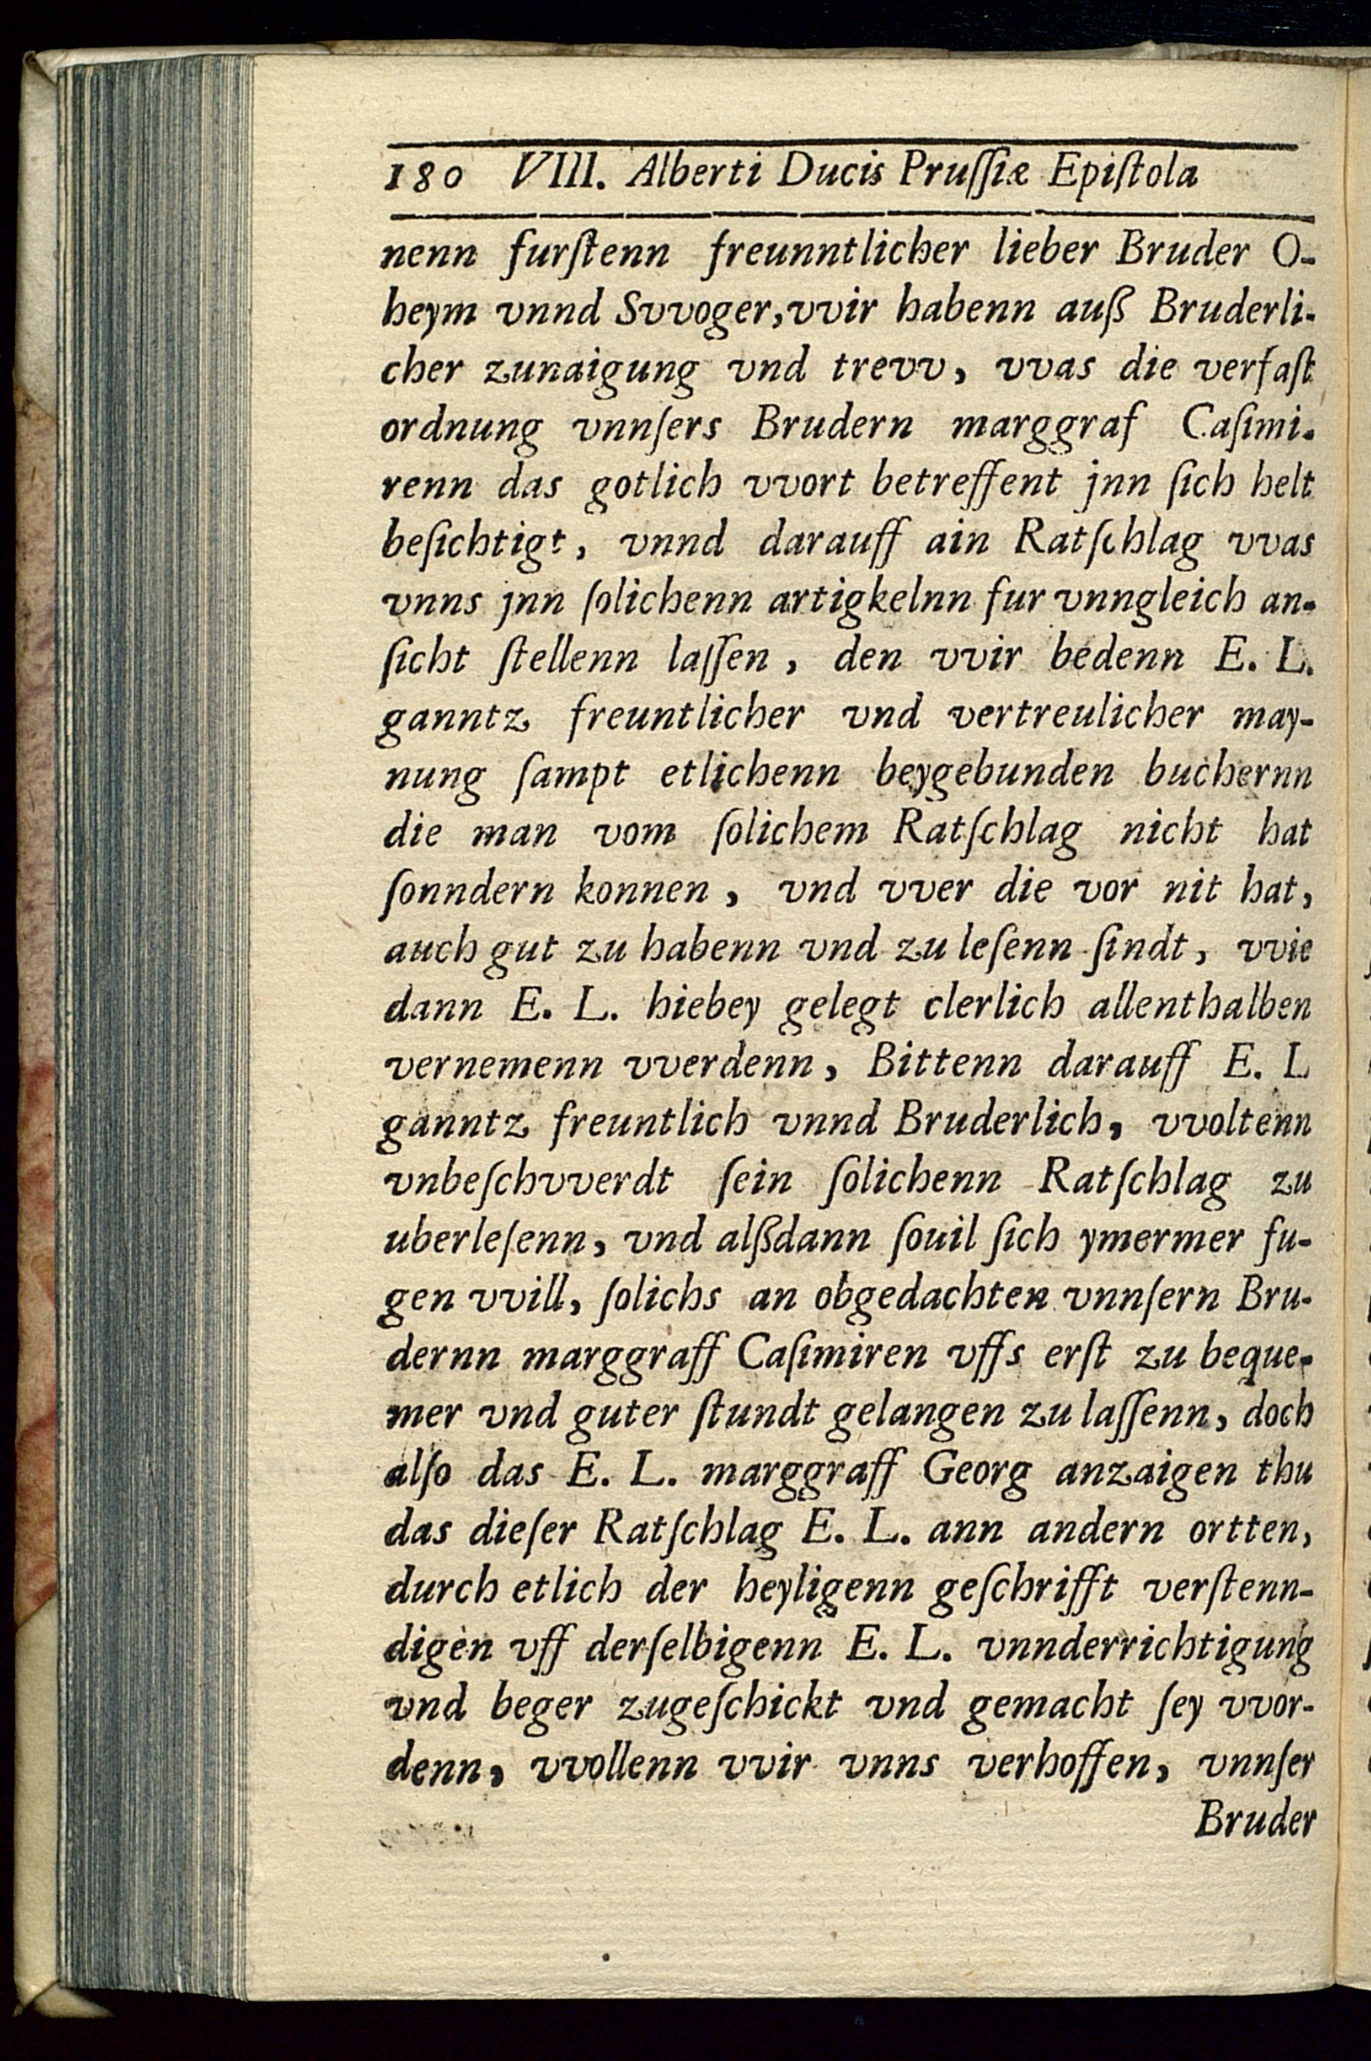 180 VIII. Alberti Ducis Pruſſiæ Epiſtola
nenn furſtenn freunntlicher lieber Bruder O-
heym vnnd Svvoger, vvir habenn auß Bruderli-
cher zunaigung vnd trevv, vvas die verfaſt
ordnung vnnſers Brudern marggraf Caſimi-
renn das gotlich vvort betreffent jnn ſich helt
beſichtigt, vnnd darauff ain Ratſchlag vvas
vnns jnn ſolichenn artigkelnn fur vnngleich an-
ſicht ſtellenn laſſen, den vvir bedenn E. L.
ganntz freuntlicher vnd vertreulicher may-
nung ſampt etlichenn beygebunden buchernn
die man vom ſolichem Ratſchlag nicht hat
ſonndern konnen, vnd vver die vor nit hat,
auch gut zu habenn vnd zu leſenn ſindt, vvie
dann E. L. hiebey gelegt clerlich allenthalben
vernemenn vverdenn, Bittenn darauff E. L
ganntz freuntlich vnnd Bruderlich, vvoltenn
vnbeſchvverdt ſein ſolichenn Ratſchlag zu
uberleſenn, vnd alßdann ſouil ſich ymermer fu-
gen vvill, ſolichs an obgedachten vnnſern Bru-
dernn marggraff Caſimiren vffs erſt zu beque-
mer vnd guter ſtundt gelangen zu laſſenn, doch
alſo das E. L. marggraff Georg anzaigen thu
das dieſer Ratſchlag E. L. ann andern ortten,
durch etlich der heyligenn geſchrifft verſtenn-
digen vff derſelbigenn E. L. vnnderrichtigung
vnd beger zugeſchickt vnd gemacht ſey vvor-
denn, vvollenn vvir vnns verhoffen, vnnſer
Bruder